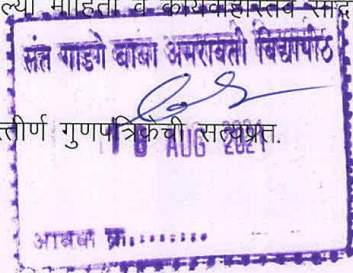 माहिती व कार्यवाहीस्तव सादर
संत गाडगे बाबा अमरावती विद्यापीठ
गुणपत्रिकेची सत्यप्रत.
AUG 2021
आवक क्र.........